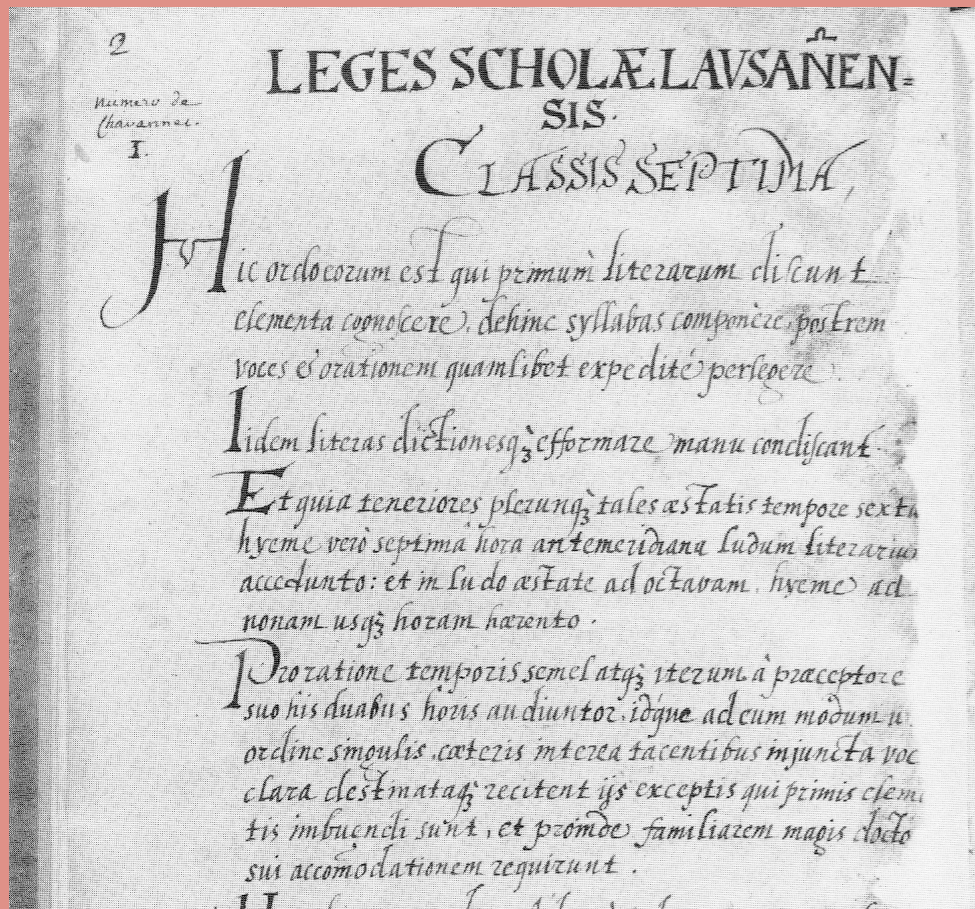 2
LEGES SCHOLÆ LAVSAÑEN=
SIS.
numero de
Chavannes.
I.
CLASSIS SEPTIMA,
Hic ordo eorum est qui primùm literarum discunt
elementa cognoscere, dehinc syllabas componere, postrem
voces et orationem quamlibet expedité perlegere.
Iidem literas dictionesqꝫ̀ efformare manu condiscant.
Et quia teneriores plerunqꝫ̀ tales æstatis tempore sexta
hyeme verò septimâ hora antemeridiana ludum literariu
accedunto: et in ludo æstate ad octavam, hyeme ad
nonam usqꝫ̀ horam hærento.
Pro ratione temporis semel atqꝫ̀ iterum à præceptore
suo his duabus horis audiuntor, idque ad eum modum u
ordine singulis, cæteris interea tacentibus injuncta voc
clara destinataqꝫ̀ recitent ijs exceptis qui primis elem
tis imbuendi sunt, et proinde familiarem magis docto
sui accōmodationem requirunt.